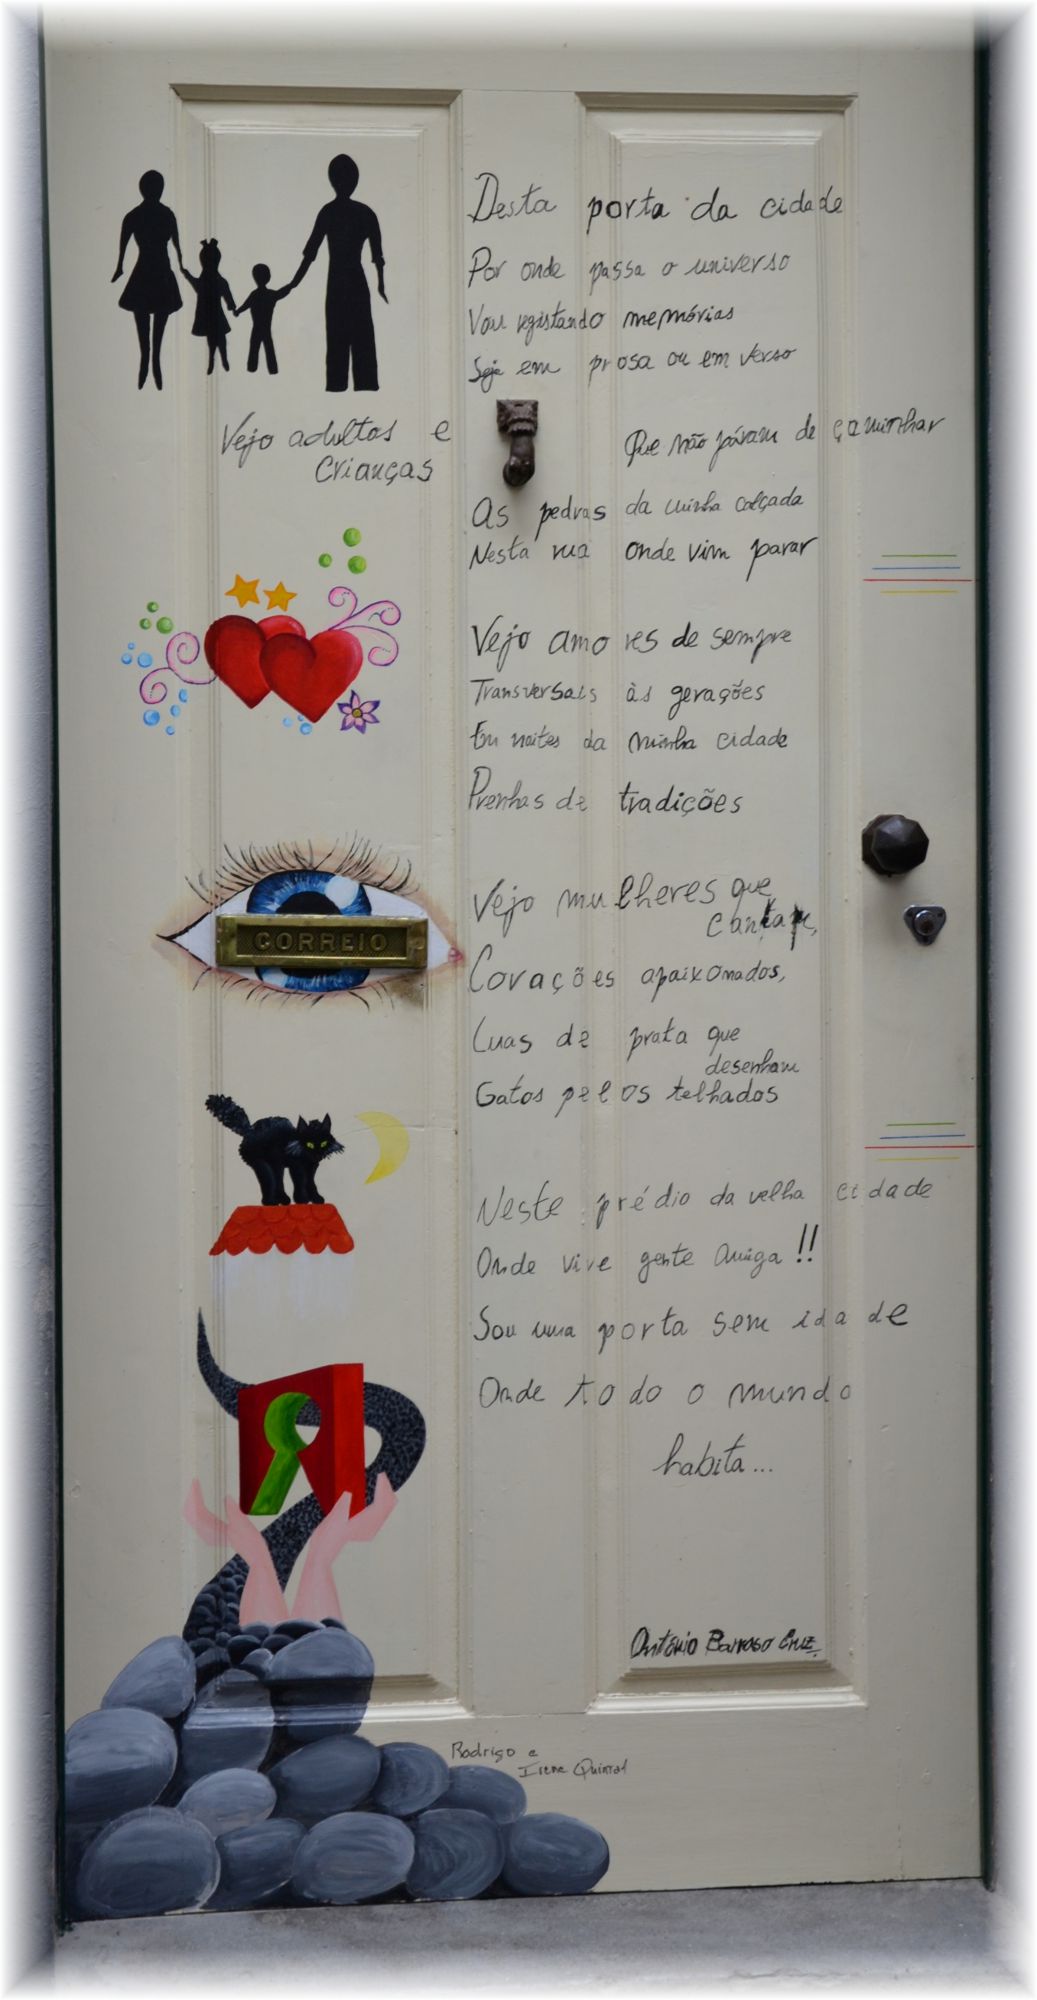 Desta porta da cidade
Por onde passa o universo
Vou registando memórias
Seja em prosa ou em verso
Vejo adultos e
crianças
Que não páram de caminhar
As pedras da minha calçada
Nesta rua onde vim parar
Vejo amores de sempre
Transversais às gerações
Em noites da minha cidade
Prenhas de tradições
Vejo mulheres que
cantam,
Corações apaixonados,
Luas de prata que
desenham
Gatos pelos telhados
CORREIO
Neste prédio da velha cidade
Onde vive gente amiga!!
Sou uma porta sem idade
Onde todo o mundo
habita...
António Barroso Cruz
Rodrigo e
Irene Quintal